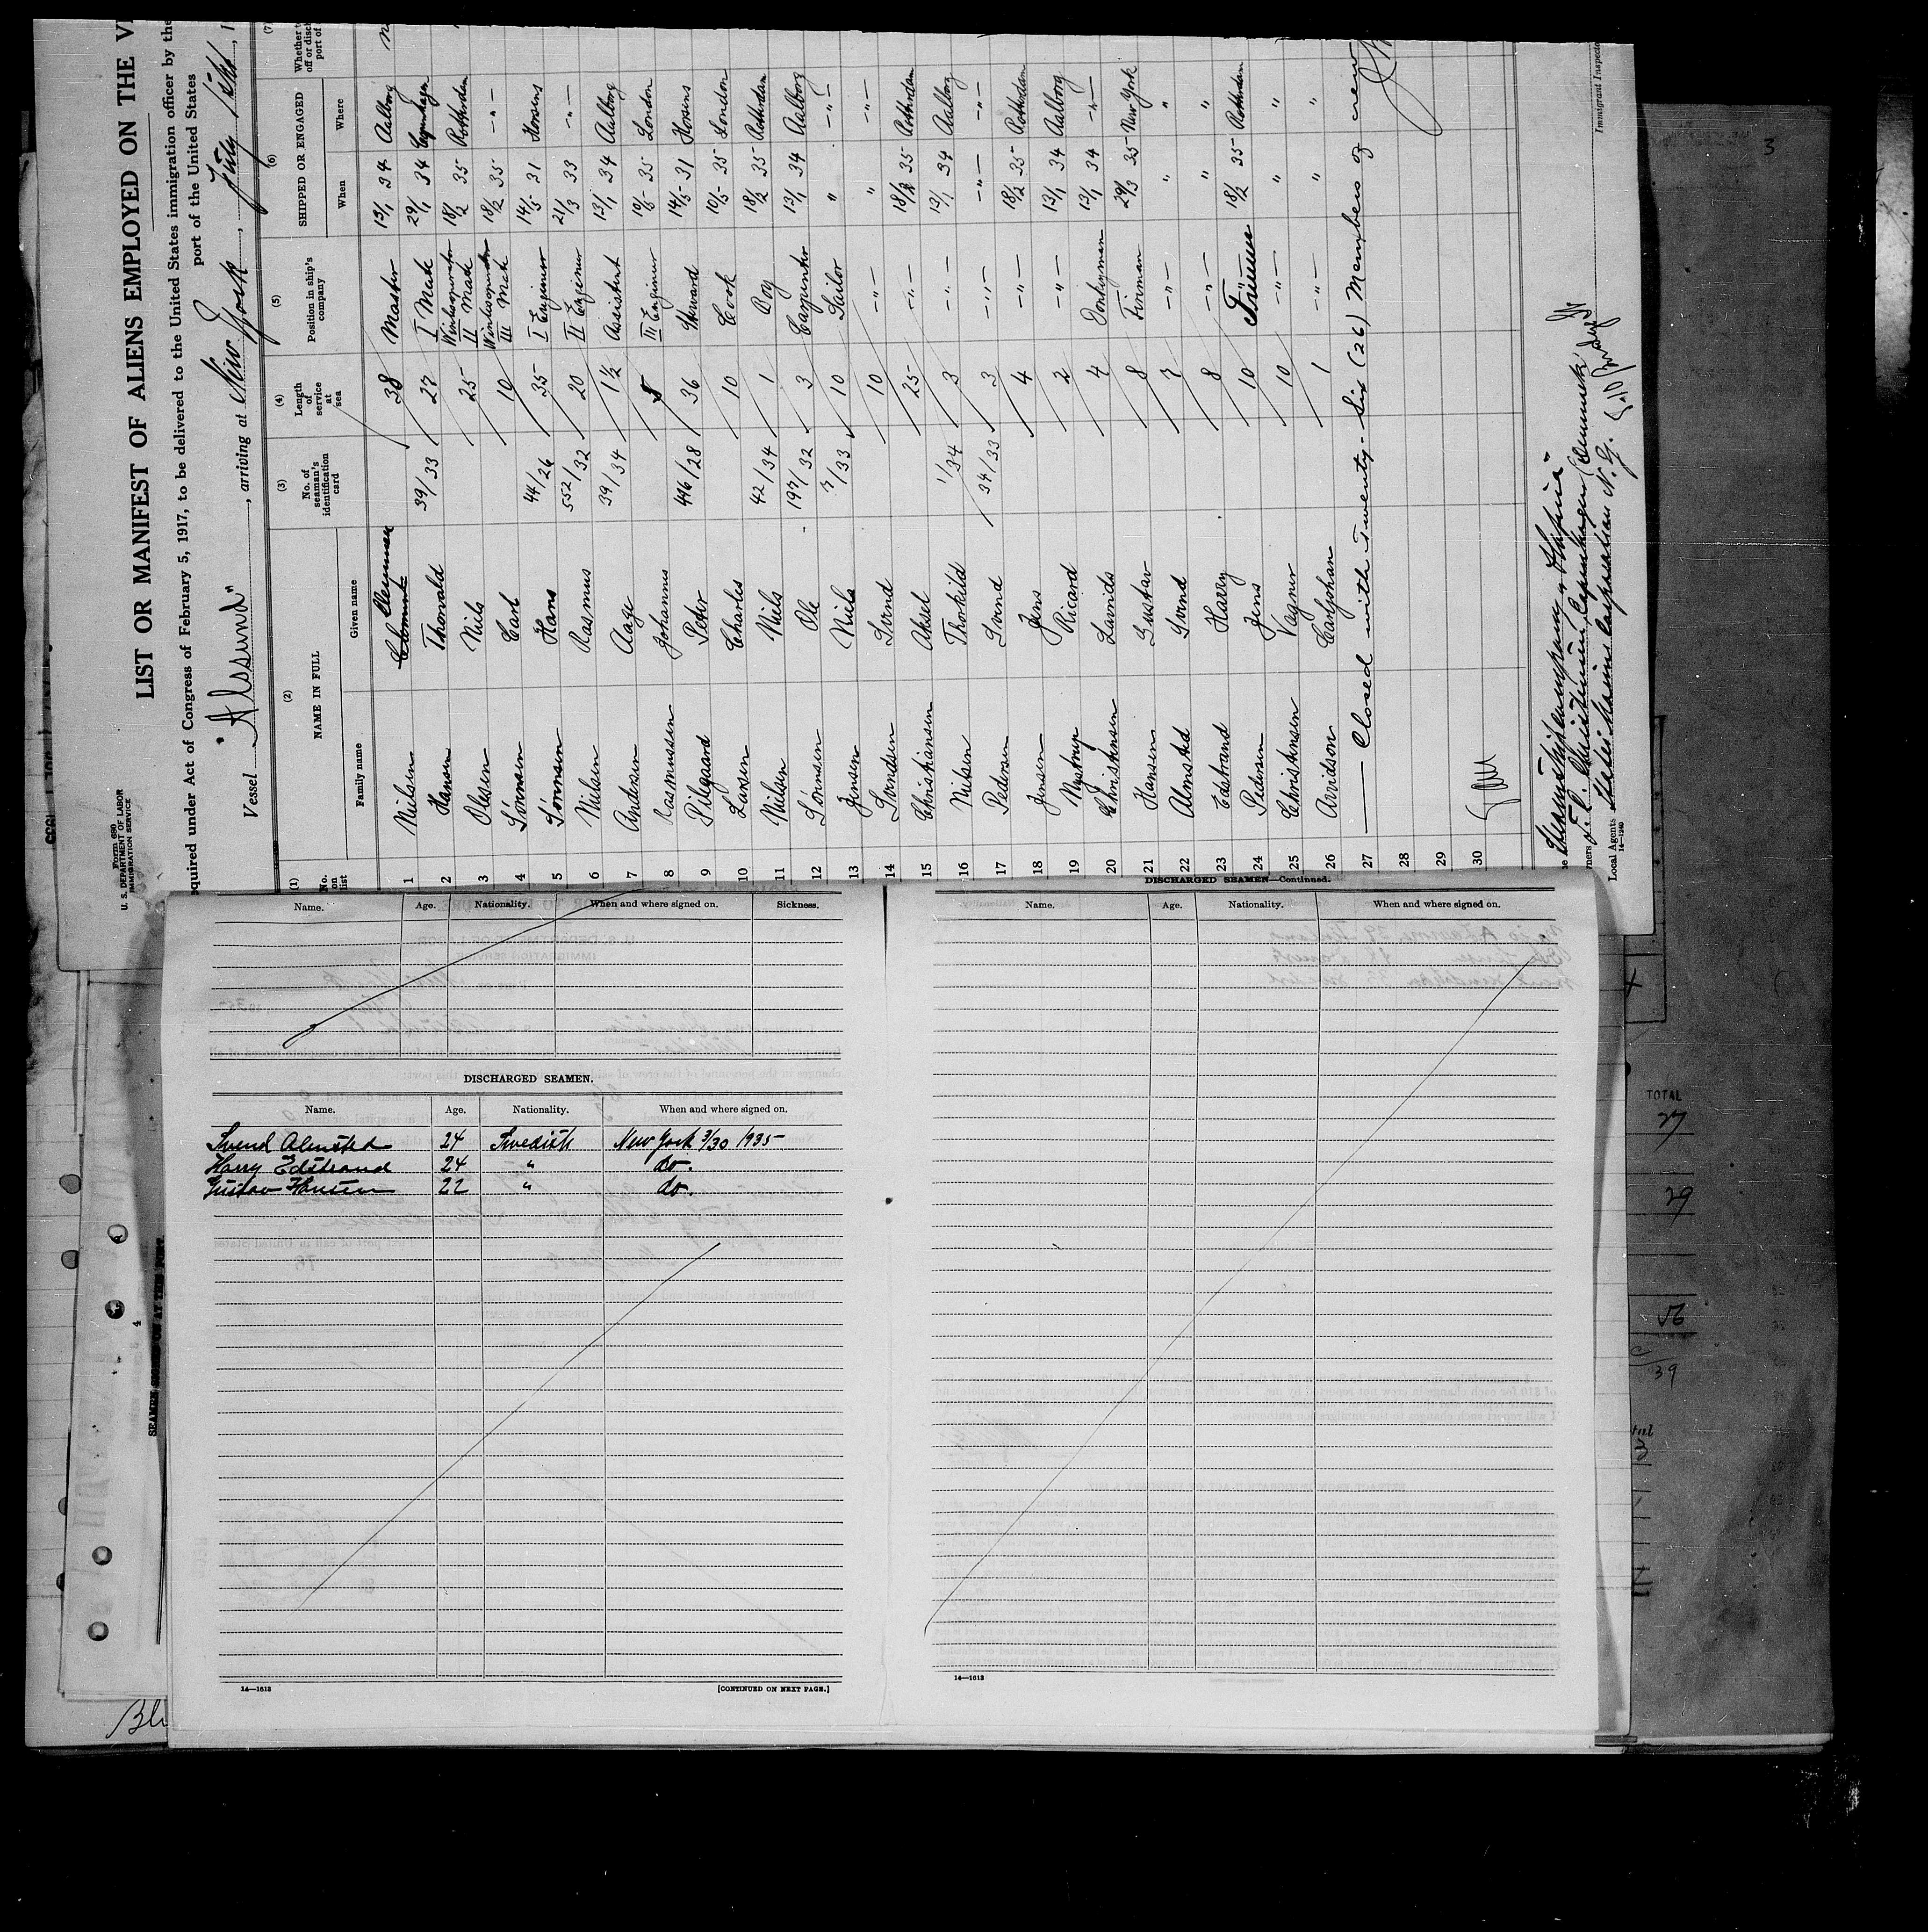 Form 680
U. S. DEPARTMENT OF LABOR
IMMIGRATION SERVICE
LIST OR MANIFEST OF ALIENS EMPLOYED ON THE
quired under Act of Congress of February 5, 1917, to be delivered to the United States immigration officer by the
port of the United States
Vessel "Alssund", arriving at New York, July
(1) (2) (3) (4) (5) (6) (7)
No. on list NAME IN FULL No. of seaman's identification card Length of service at sea Position in ship's company SHIPPED OR ENGAGED Whether to
off or disch
port of
Family name Given name When Where
1 Nielsen Clemmen 38 Master 13/1 34 Aalborg
2 Hansen Thorvald 39/33 27 I Mate 29/1 34 Copenhagen
3 Olesen Niels 25 II Mate 18/2 35 Rotterdam
4 Sørensen Carl 10 III Mate 18/2 35 -"-
5 Sørensen Hans 44/26 35 I Engineer 14/5 31 Horsens
6 Nielsen Rasmus 552/32 20 II Engineer 21/3 33 -"-
7 Andersen Aage 39/34 1½ Assistent 13/1 34 Aalborg
8 Rasmussen Johannes 8 III Engineer 10/5 35 London
9 Pilegaard Peter 496/28 36 Steward 14/5 31 Horsens
10 Larsen Charles 10 Cook 10/5 35 London
11 Nielsen Niels 42/34 1 Boy 18/2 35 Rotterdam
12 Sørensen Ole 197/32 3 Carpenter 13/1 34 Aalborg
13 Jensen Niels 7/33 10 Sailor " -"-
14 Svendsen Svend 10 -"- " -"-
15 Christiansen Aksel 25 -"- 18/2 35 Rotterdam
16 Nielsen Thorkild 1/34 3 -"- 13/1 34 Aalborg
17 Pedersen Svend 34/33 3 -"- -"- -"-
18 Jensen Jens 4 -"- 18/2 35 Rotterdam
19 Nystrup Ricard 2 -"- 13/1 34 Aalborg
20 Christensen Lavrids 4 Donkeyman 13/1 34 -"-
21 Hansen Gustav 8 Fireman 29/3 35 New York
22 Almsted Svend 7 -"- " "
23 Edstrand Harry 8 -"- " "
24 Pedersen Jens 10 Trimmer 18/2 35 Rotterdam
25 Christensen Vagner 10 -"- " "
26 Arvidson Carljohan 1 -"- " "
27 Closed with Twenty-Six (26) Members of crew
28
29
30
Local Agents States Marine Corporation N.Y.
14—1240
Immigrant Inspecto
Name. Age. Nationality. When and where signed on. Sickness.
DISCHARGED SEAMEN.
Name. Age. Nationality. When and where signed on.
Svend Almsted 24 Swedish New York 3/30 1935
Harry Edstrand 24 " do.
Gustav Hansen 22 " do.
14—1613
[CONTINUED ON NEXT PAGE.]
DISCHARGED SEAMEN—Continued.
Name. Age. Nationality. When and where signed on.
14—1613
3
TOTAL
27
29
56
39